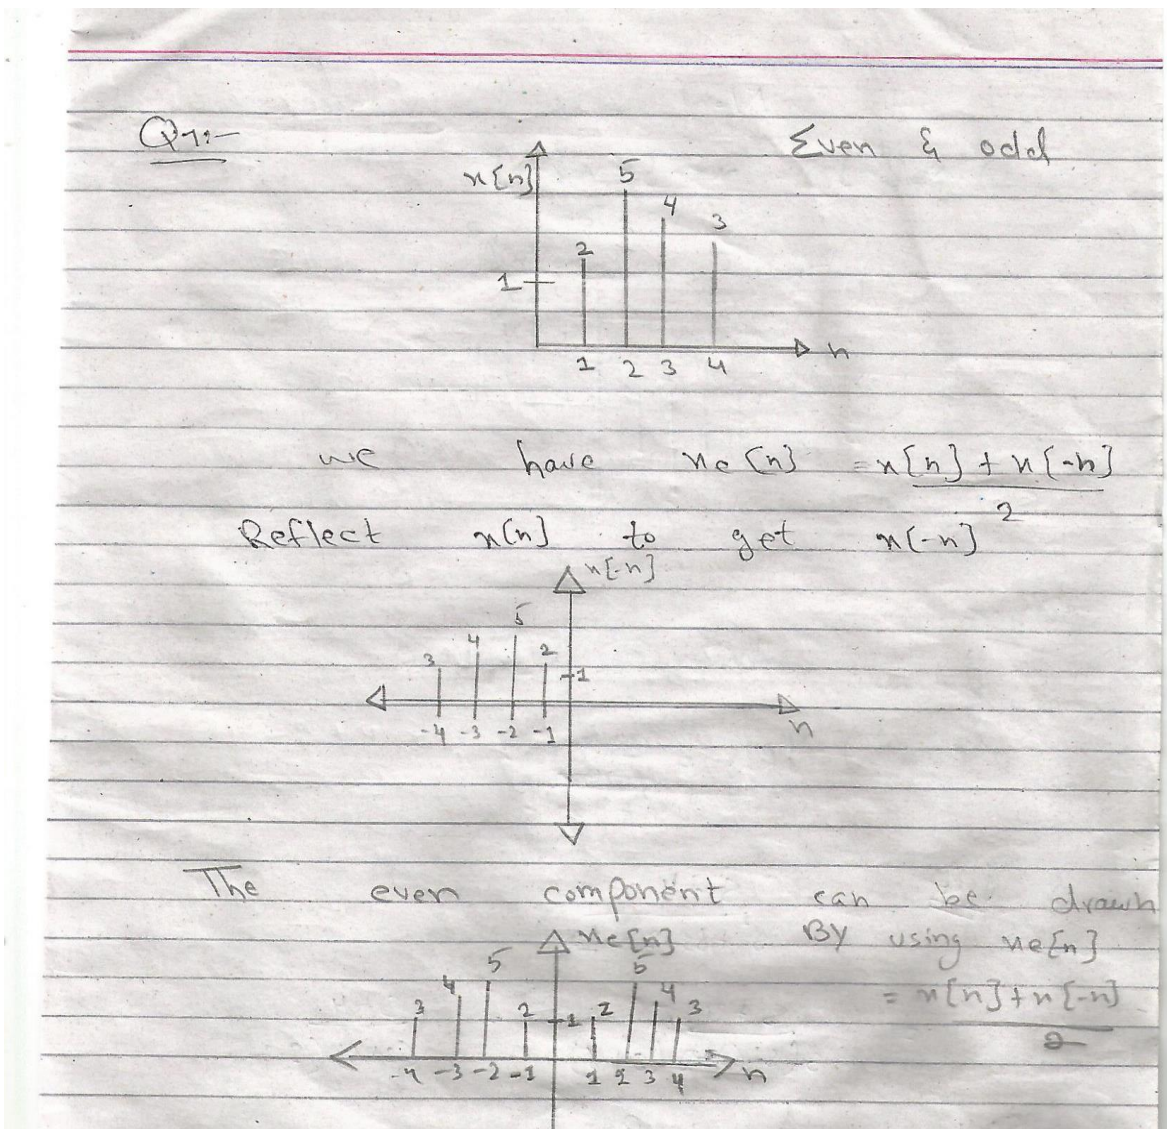 Q71:- Even & odd
x[n]
5
4
3
2
1
1 2 3 4 n
we have xe[n] = x[n] + x[-n]
2
Reflect x[n] to get x[-n]
x[-n]
5
4
3 2
1
-4 -3 -2 -1 n
The even component can be drawn
xe[n] By using xe[n]
5 5
4 4 = x[n] + x[-n]
3 2 1 2 3
2
-4 -3 -2 -1 1 2 3 4 n